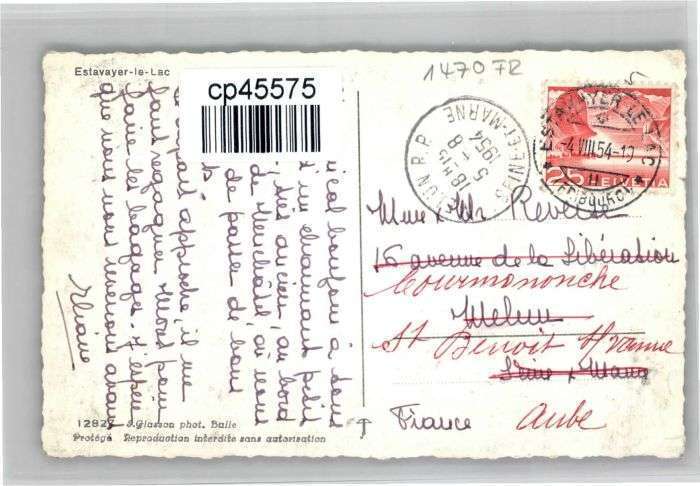 Estavayer-le-Lac
cp45575
1470 FR
ESTAVAYER LE LAC
-4.VIII.54-19
11
(FRIBOURG)
HELVETIA
MELUN R.P.
18H15
5 - 8
1954
SEINE-ET-MARNE
bonjour à tous
d'un charmant petit
très ancien, au bord
de Neuchâtel, où nous
de passer de bons
départ approche, il me
faut regagner Mont pour
faire les bagages. J'espère
que nous nous reverrons avant
Eliane
Mme & Mr
16 avenue de la Libération
Courmononche
Melun
St Benoit s/Vanne
Seine & Marne
France
Aube
J. Glasson phot. Bulle
Protégé Reproduction interdite sans autorisation